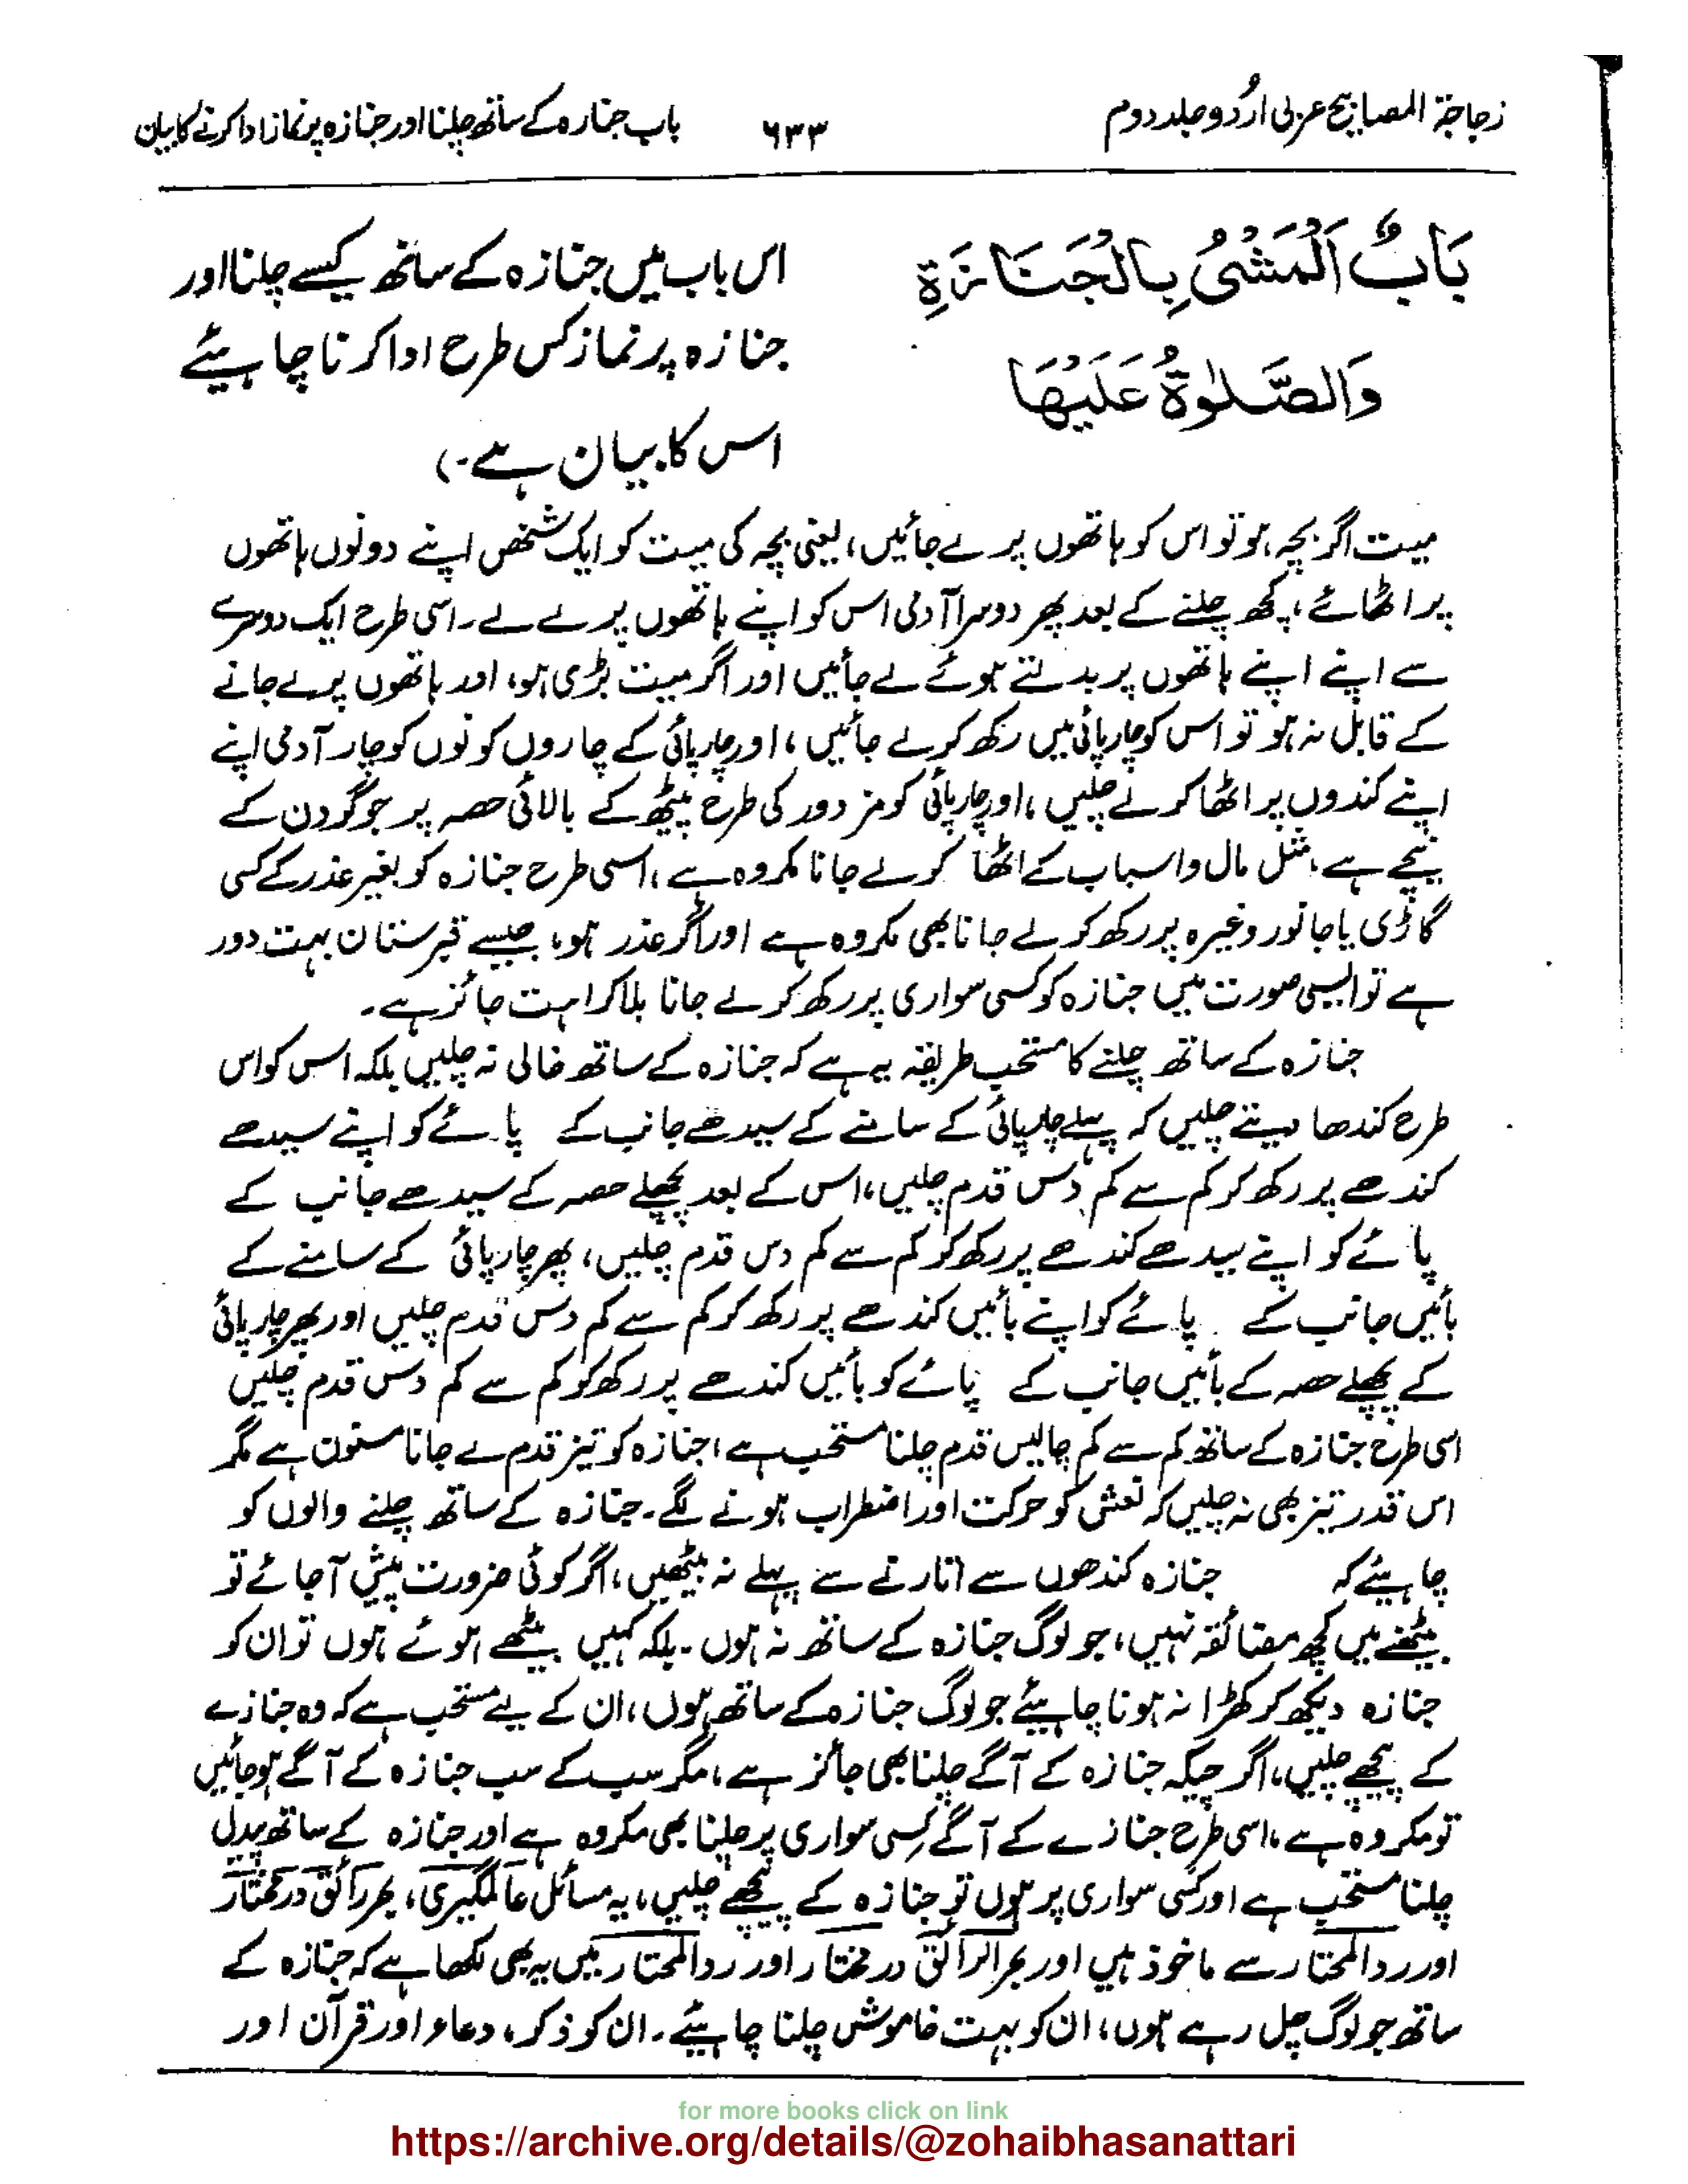 زجاجۃ المصابیح عربی اردو جلد دوم
۶۳۳
باب جنازہ کے ساتھ چلنا اور جنازہ پر نماز ادا کرنے کا بیان
بَابُ الْمَشْیُ بِالْجَنَازَۃِ
وَالصَّلٰوۃُ عَلَیْھَا
اس باب میں جنازہ کے ساتھ کیسے چلنا اور
جنازہ پر نماز کس طرح ادا کرنا چاہیئے
اس کا بیان ہے۔)
میت اگر بچہ ہو تو اس کو ہاتھوں پر لے جائیں، یعنی بچہ کی میت کو ایک شخص اپنے دونوں ہاتھوں
پر اٹھائے، کچھ چلنے کے بعد پھر دوسرا آدمی اس کو اپنے ہاتھوں پر لے لے۔ اسی طرح ایک دوسرے
سے اپنے اپنے ہاتھوں پر بدلتے ہوئے لے جائیں اور اگر میت بڑی ہو، اور ہاتھوں پر لے جانے
کے قابل نہ ہو تو اس کو چارپائی میں رکھ کر لے جائیں، اور چارپائی کے چاروں کونوں کو چار آدمی اپنے
اپنے کندوں پر اٹھا کر لے چلیں، اور چارپائی کو مزدور کی طرح پیٹھ کے بالائی حصہ پر جو گردن کے
نیچے ہے، مثل مال و اسباب کے اٹھا کر لے جانا مکروہ ہے، اسی طرح جنازہ کو بغیر عذر کے کسی
گاڑی یا جانور وغیرہ پر رکھ کر لے جانا بھی مکروہ ہے اور اگر عذر ہو، جیسے قبرستان بہت دور
ہے تو ایسی صورت میں جنازہ کو کسی سواری پر رکھ کر لے جانا بلا کراہت جائز ہے۔
جنازہ کے ساتھ چلنے کا مستحب طریقہ یہ ہے کہ جنازہ کے ساتھ خالی نہ چلیں بلکہ اس کو اس
طرح کندھا دیتے چلیں کہ پہلے چارپائی کے سامنے کے سیدھے جانب کے پائے کو اپنے سیدھے
کندھے پر رکھ کر کم سے کم دس قدم چلیں، اس کے بعد پچھلے حصہ کے سیدھے جانب کے
پائے کو اپنے سیدھے کندھے پر رکھ کو کم سے کم دس قدم چلیں، پھر چارپائی کے سامنے کے
بائیں جانب کے پائے کو اپنے بائیں کندھے پر رکھ کر کم سے کم دس قدم چلیں اور پھر چارپائی
کے پچھلے حصہ کے بائیں جانب کے پائے کو بائیں کندھے پر رکھ کو کم سے کم دس قدم چلیں
اسی طرح جنازہ کے ساتھ کم سے کم چالیس قدم چلنا مستحب ہے، جنازہ کو تیز قدم لے جانا مسنون ہے مگر
اس قدر تیز بھی نہ چلیں کہ نعش کو حرکت اور اضطراب ہونے لگے۔ جنازہ کے ساتھ چلنے والوں کو
چاہیئے کہ جنازہ کندھوں سے اتارنے سے پہلے نہ بیٹھیں، اگر کوئی ضرورت پیش آجائے تو
بیٹھنے میں کچھ مضائقہ نہیں، جو لوگ جنازہ کے ساتھ نہ ہوں۔ بلکہ کہیں بیٹھے ہوئے ہوں تو ان کو
جنازہ دیکھ کر کھڑا نہ ہونا چاہیئے جو لوگ جنازہ کے ساتھ ہوں، ان کے لیے مستحب ہے کہ وہ جنازے
کے پیچھے چلیں، اگر چیکہ جنازہ کے آگے چلنا بھی جائز ہے، مگر سب کے سب جنازہ کے آگے ہو جائیں
تو مکروہ ہے، اسی طرح جنازے کے آگے کسی سواری پر چلنا بھی مکروہ ہے اور جنازہ کے ساتھ پیدل
چلنا مستحب ہے اور کسی سواری پر ہوں تو جنازہ کے پیچھے چلیں، یہ مسائل عالمگیری، بحر رائق در مختار
اور رد المحتار سے ماخوذ ہیں اور بحر الرائق در مختار اور رد المحتار میں یہ بھی لکھا ہے کہ جنازہ کے
ساتھ جو لوگ چل رہے ہوں، ان کو بہت خاموش چلنا چاہیئے۔ ان کو ذکر، دعاء اور قرآن اور
for more books click on link
https://archive.org/details/@zohaibhasanattari